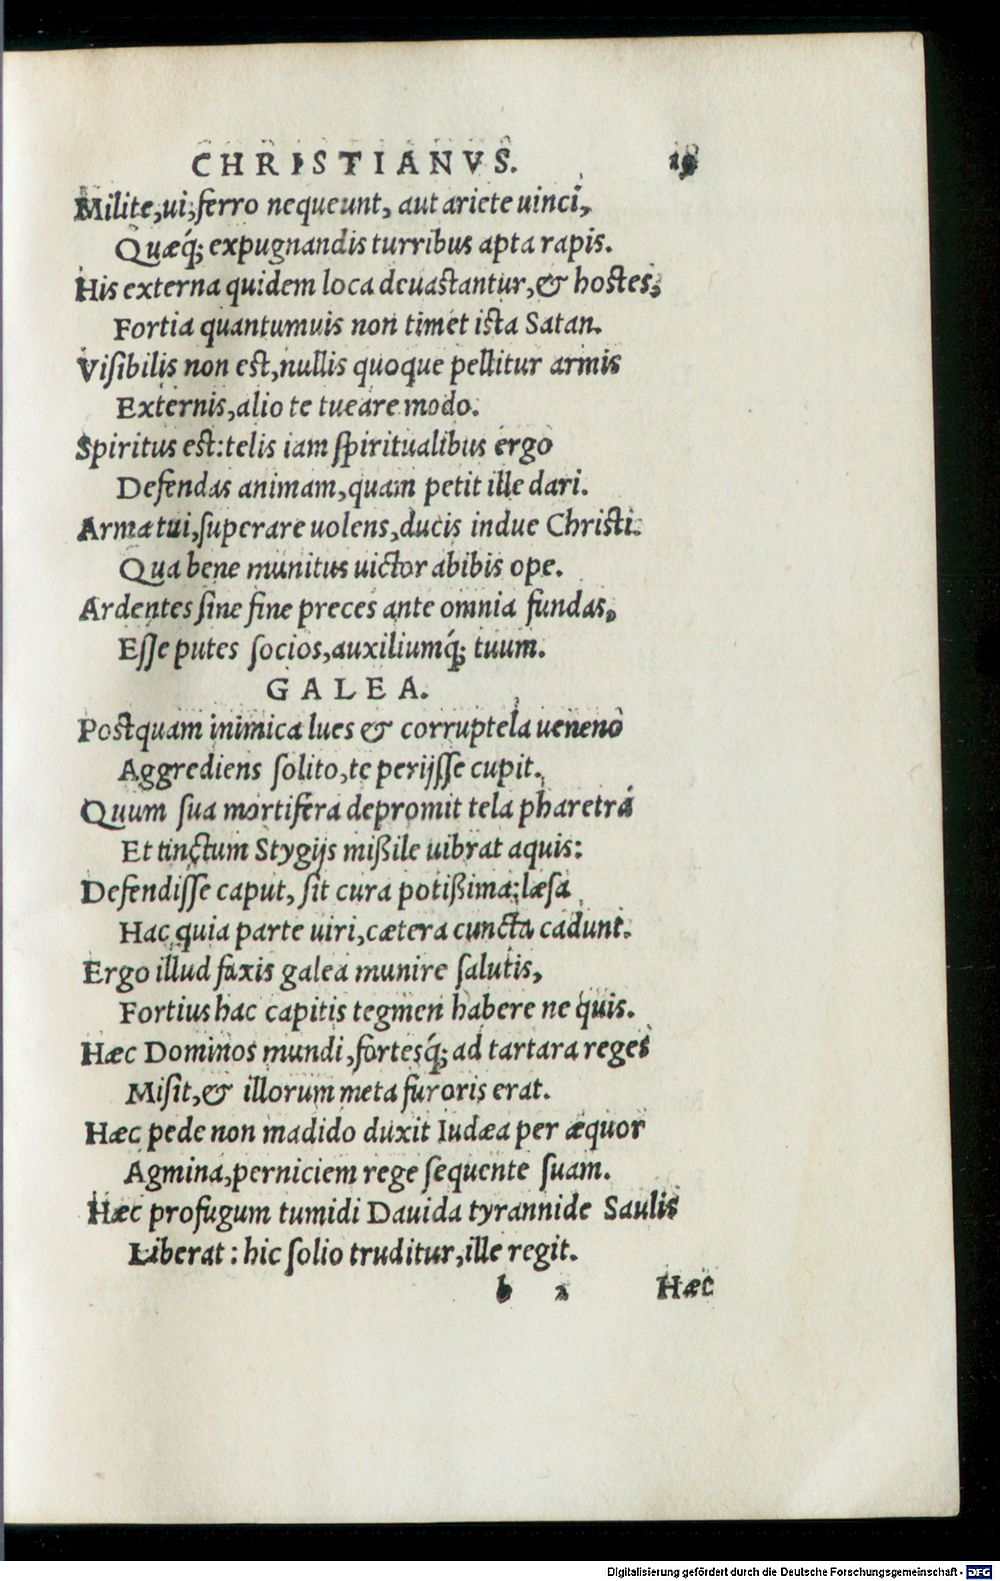 CHRISTIANVS. 19
Milite,ui,ferro nequeunt, aut ariete uinci,
Quæq́; expugnandis turribus apta rapis.
His externa quidem loca deuastantur,& hostes,
Fortia quantumuis non timet ista Satan.
Visibilis non est,nullis quoque pellitur armis
Externis,alio te tueare modo.
Spiritus est:telis iam spiritualibus ergo
Defendas animam,quam petit ille dari.
Arma tui,superare uolens,ducis indue Christi.
Qua bene munitus uictor abibis ope.
Ardentes sine fine preces ante omnia fundas,
Esse putes socios,auxiliumq́; tuum.
GALEA.
Postquam inimica lues & corruptela ueneno
Aggrediens solito,te perijsse cupit.
Quum sua mortifera depromit tela pharetra
Et tinctum Stygijs mißile uibrat aquis:
Defendisse caput, sit cura potißima;læsa
Hac quia parte uiri,cætera cuncta cadunt.
Ergo illud faxis galea munire salutis,
Fortius hac capitis tegmen habere ne quis.
Hæc Dominos mundi,fortesq́; ad tartara reges
Misit,& illorum meta furoris erat.
Hæc pede non madido duxit Iudæa per æquor
Agmina,perniciem rege sequente suam.
Hæc profugum tumidi Dauida tyrannide Saulis
Liberat : hic solio truditur,ille regit.
b 2 Hæc
Digitalisierung gefördert durch die Deutsche Forschungsgemeinschaft - DFG